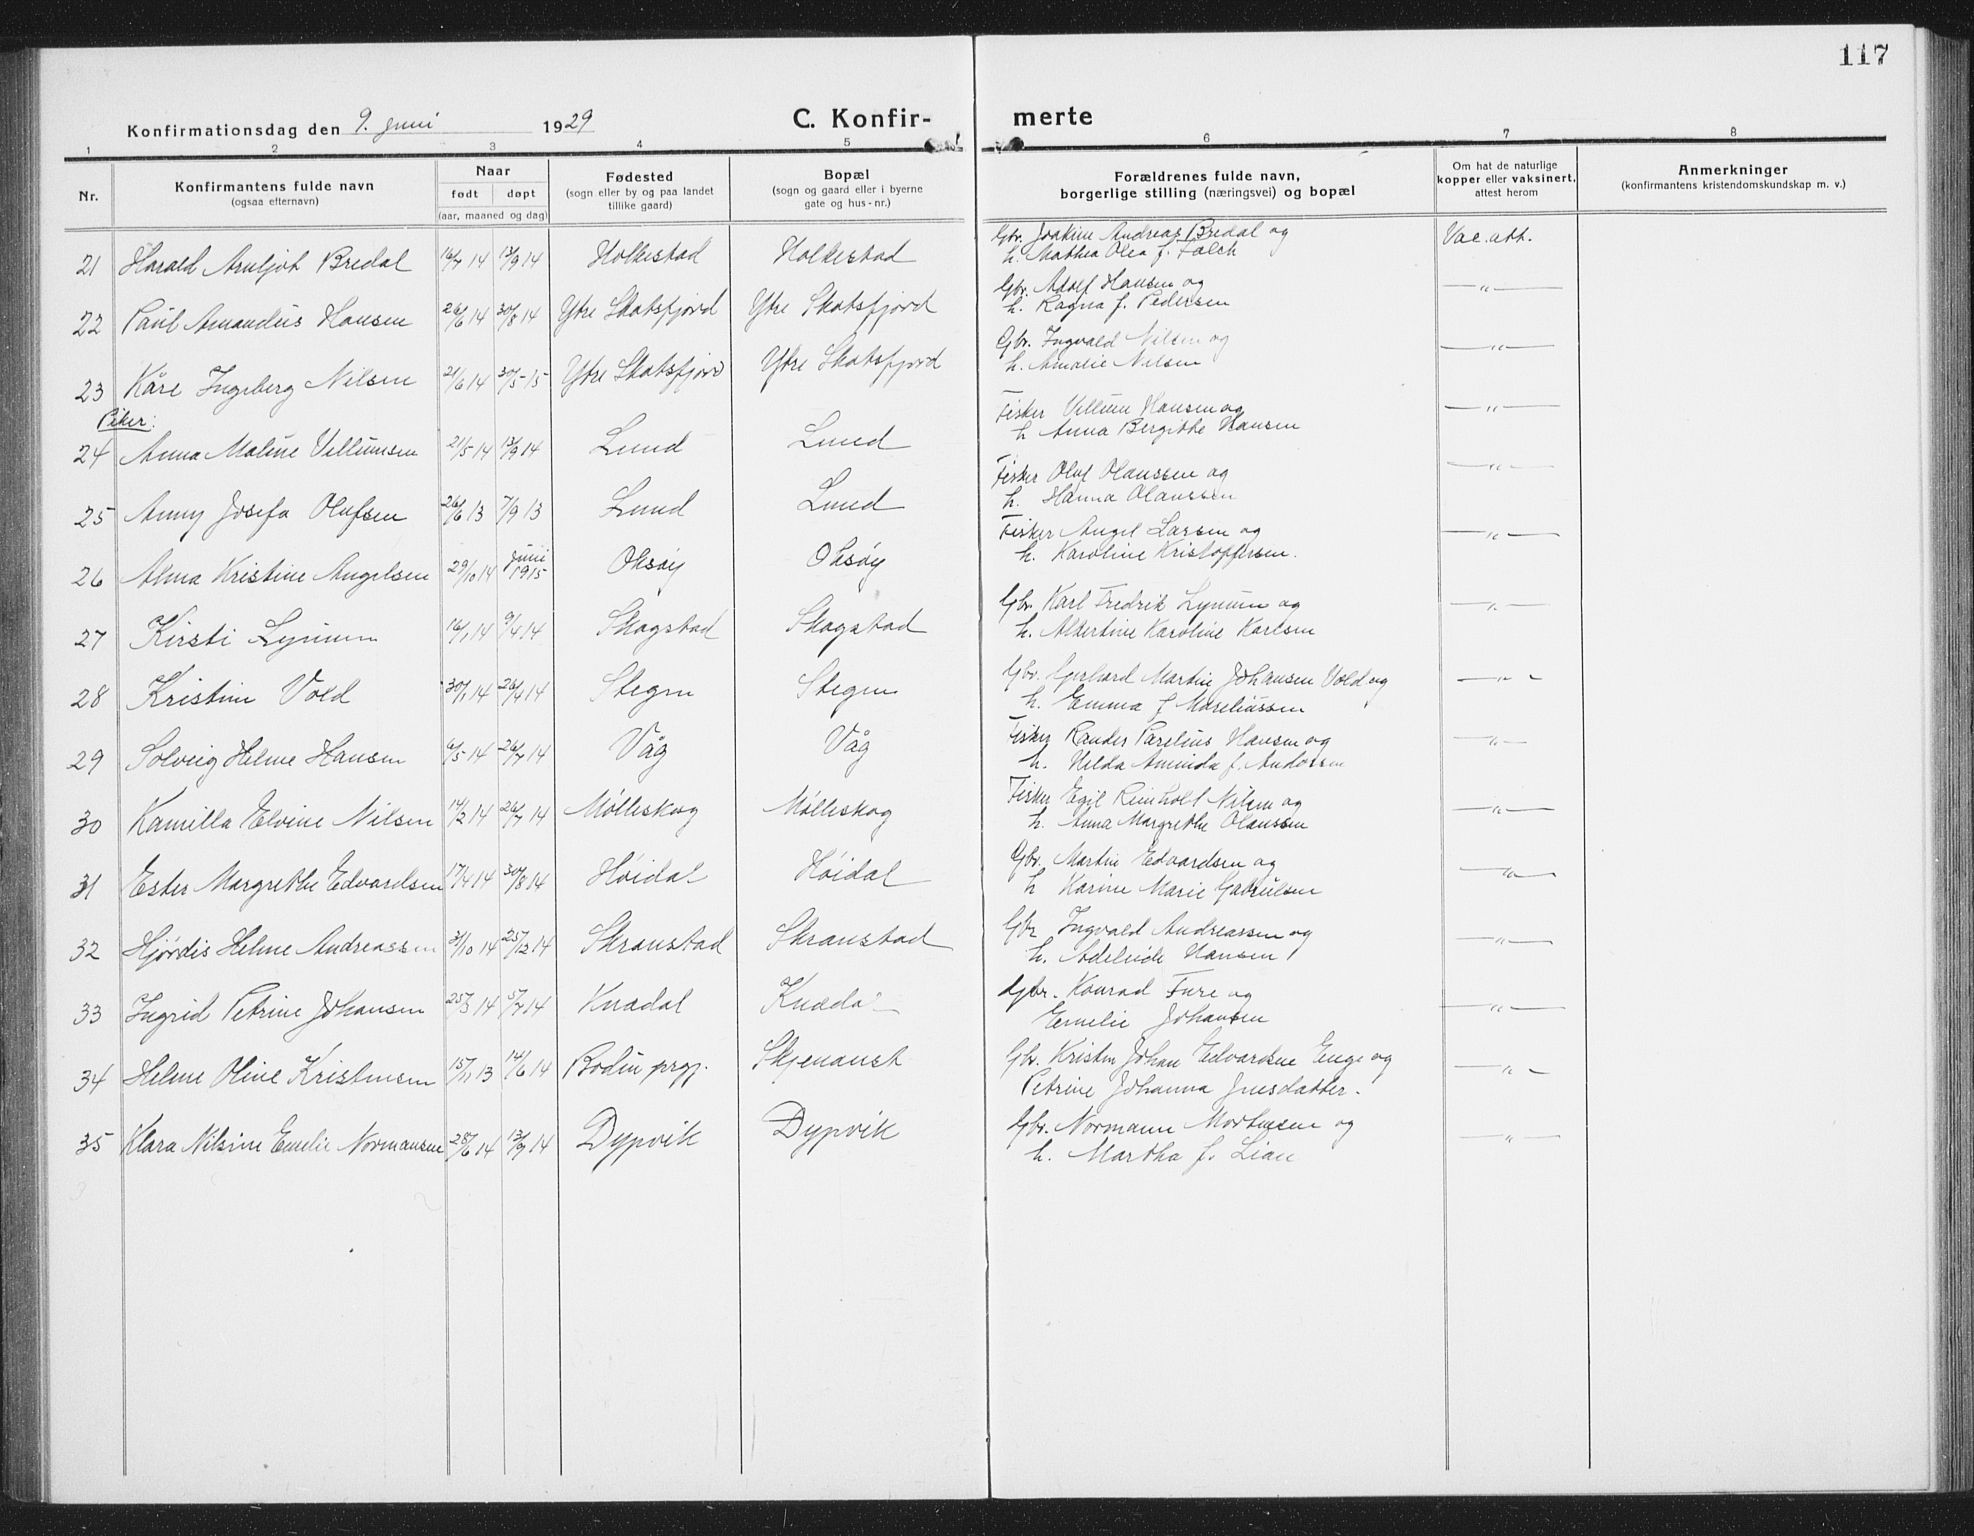 117
Konfirmationsdag den 9. juni 1929 C. Konfir- merte
1 2 3 4 5 6 7 8
Nr. Konfirmantens fulde navn (ogsaa efternavn) Naar født døpt (aar, maaned og dag) Fødested (sogn eller by og paa landet tillike gaard) Bopæl (sogn og gaard eller i byerne gate og hus-nr.) Forældrenes fulde navn, borgerlige stilling (næringsvei) og bopæl Om hat de naturlige kopper eller vaksinert, attest herom Anmerkninger (konfirmantens kristendomskundskap m. v.)
21 Harald Arnljot Bredal 16/7 14 13/9 14 Holkestad Holkestad Gbr. Joakim Andreas Bredal og h. Mathea Olea f. Falch Vac. att.
22 Paul Amandus Hansen 26/6 14 30/8 14 Ytre Skotsfjord Ytre Skotsfjord Gbr. Adolf Hansen og h. Ragna f. Pedersen —"—
23 Kåre Ingeberg Nilsen 21/6 14 30/5-15 Ytre Skotsfjord Ytre Skotsfjord Gbr. Ingvald Nilsen og h. Amalie Nilsen —"—
Piker:
24 Anna Maline Villumsen 21/5 14 13/9 14 Lund Lund Fisker Villum Hansen og h Anna Bergitte Hansen —"—
25 Anny Josefa Olufsen 26/6 13 7/9 13 Lund Lund Fisker Oluf Olaussen og h. Hanna Olaussen —"—
26 Alma Kristine Angelsen 29/10 14 Juni 1915 Oksøy Oksøy Fisker Angel Larsen og h. Karoline Kristoffersen. —"—
27 Kirsti Lynum 16/1 14 9/4 14 Skogstad Skogstad Gbr. Karl Fredrik Lynum og h. Albertine Karoline Karlsen —"—
28 Kristine Vold 30/1 14 26/4 14 Stegen Stegen Gbr. Gerhard Martin Johansen Vold og h. Emma f Mareliussen —"—
29 Solveig Helene Hansen 6/5-14 26/7 14 Våg Våg Fisker Rander Parelius Hansen og h. Hilda Aminda f. Andersen —"—
30 Kamilla Elvine Nilsen 14/2 14 26/7 14 Mølleskog Mølleskog Fisker Egil Reinholt Nilsen og h. Anna Margrethe Olaussen —"—
31 Ester Margrethe Edvardsen 17/4 14 30/8 14 Høidal Høidal Gbr. Martin Edvardsen og h Karine Marie Gabrielsen —"—
32 Hjørdis Helene Andreassen 3/10 14 25/12 14 Skranstad Skranstad Gbr Ingvald Andreassen og h. Adeleide Hansen —"—
33 Ingrid Petrine Johansen 25/3 14 5/7 14 Knædal Knæda Gbr. Konrad Fure og Emelie Johansen —"—
34 Helene Oline Kristensen 15/11 13 14/6 14 Bodin prgj. Skjenanset Gbr. Kristen Johan Edvardsen Enge og Petrine Johanna Jensdatter. —"—
35 Klara Nilsine Emelie Normansen 28/6 14 13/9 14 Dypvik Dypvik Gbr. Normann Mortensen og h. Martha f. Lian —"—